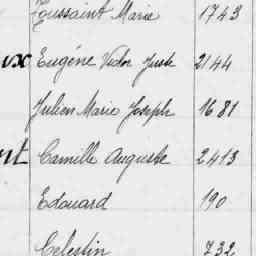 Toussaint Marie 1743
ux Eugène Victor Juste 2144
Julien Marie Joseph 1681
nt Camille Auguste 2413
Edouard 190
Celestin 732